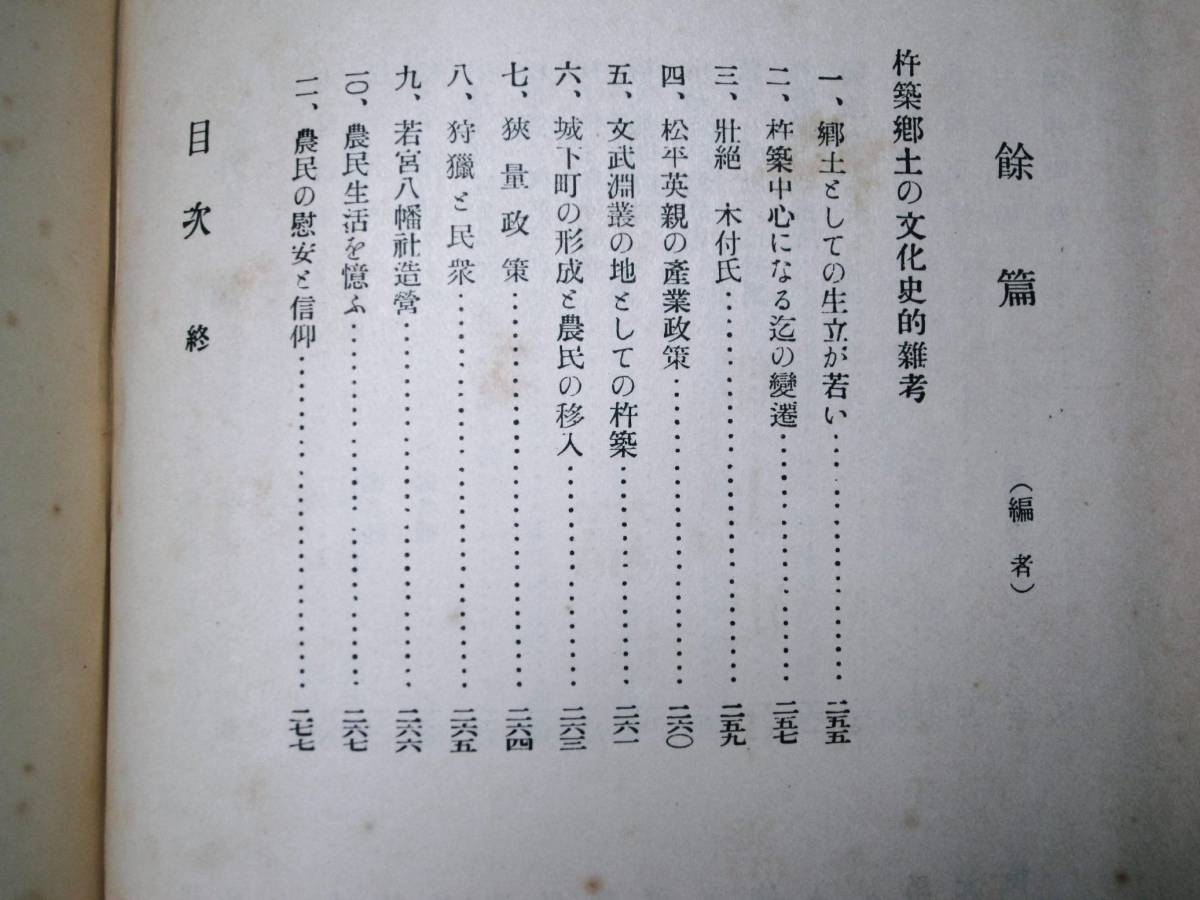 餘篇（編者）
杵築鄕土の文化史的雜考
一、鄕土としての生立が若い……二五五
二、杵築中心になる迄の變遷……二五七
三、壯絕　木付氏……二五九
四、松平英親の產業政策……二六〇
五、文武淵叢の地としての杵築……二六一
六、城下町の形成と農民の移入……二六三
七、狹量政策……二六四
八、狩獵と民衆……二六五
九、若宮八幡社造營……二六六
一〇、農民生活を憶ふ……二六七
一一、農民の慰安と信仰……二七七
目次　終